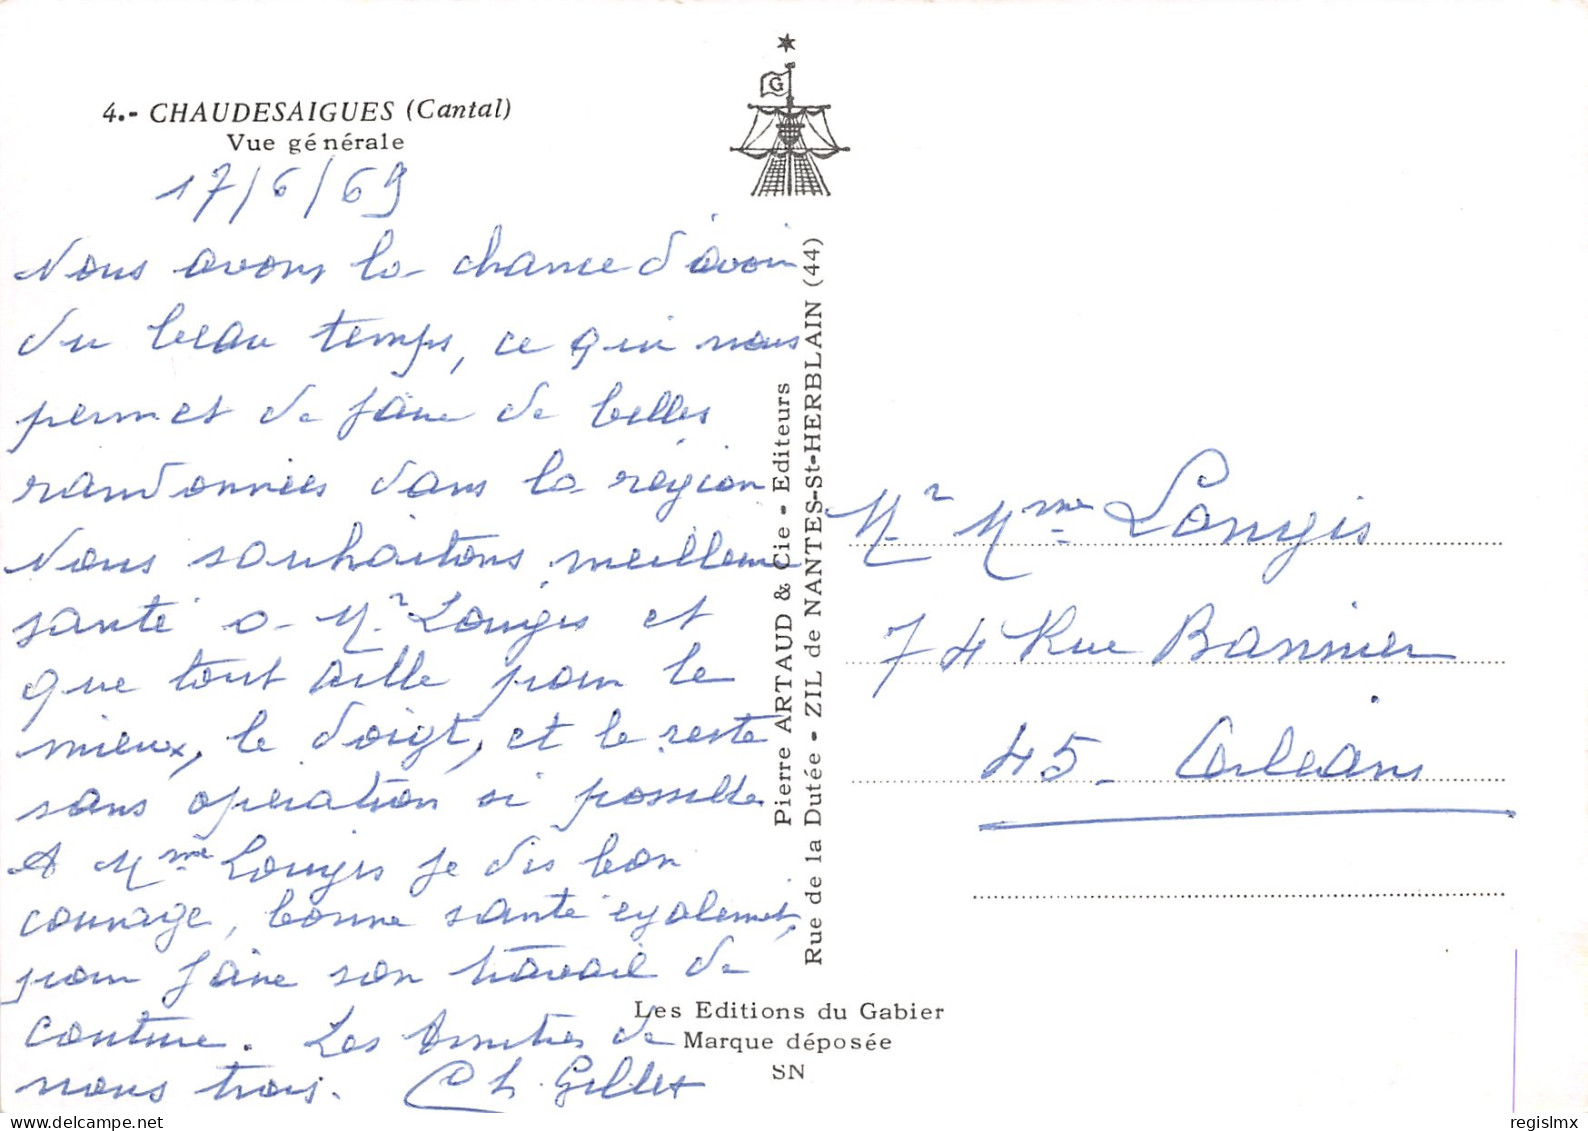 4.- CHAUDESAIGUES (Cantal)
Vue générale
17/6/69
Nous avons la chance d'avoir
du beau temps, ce qui nous
permet de faire de belles
randonnées dans la région
Nous souhaitons meilleure
santé a Mr Longis et
que tout aille pour le
mieux, le doigt, et le reste
sans opération si possible
A Mme Longis je dis bon
courage, bonne santé egalement,
pour faire son travail de
couture. Les Amitiés de
nous trois. Ch. Gillet
G
Pierre ARTAUD & Cie - Editeurs
Rue de la Dutée - ZIL de NANTES-St-HERBLAIN (44)
Les Editions du Gabier
Marque déposée
SN
Mr Mme Longis
74 Rue Bannier
45 - Orléans
regislmx